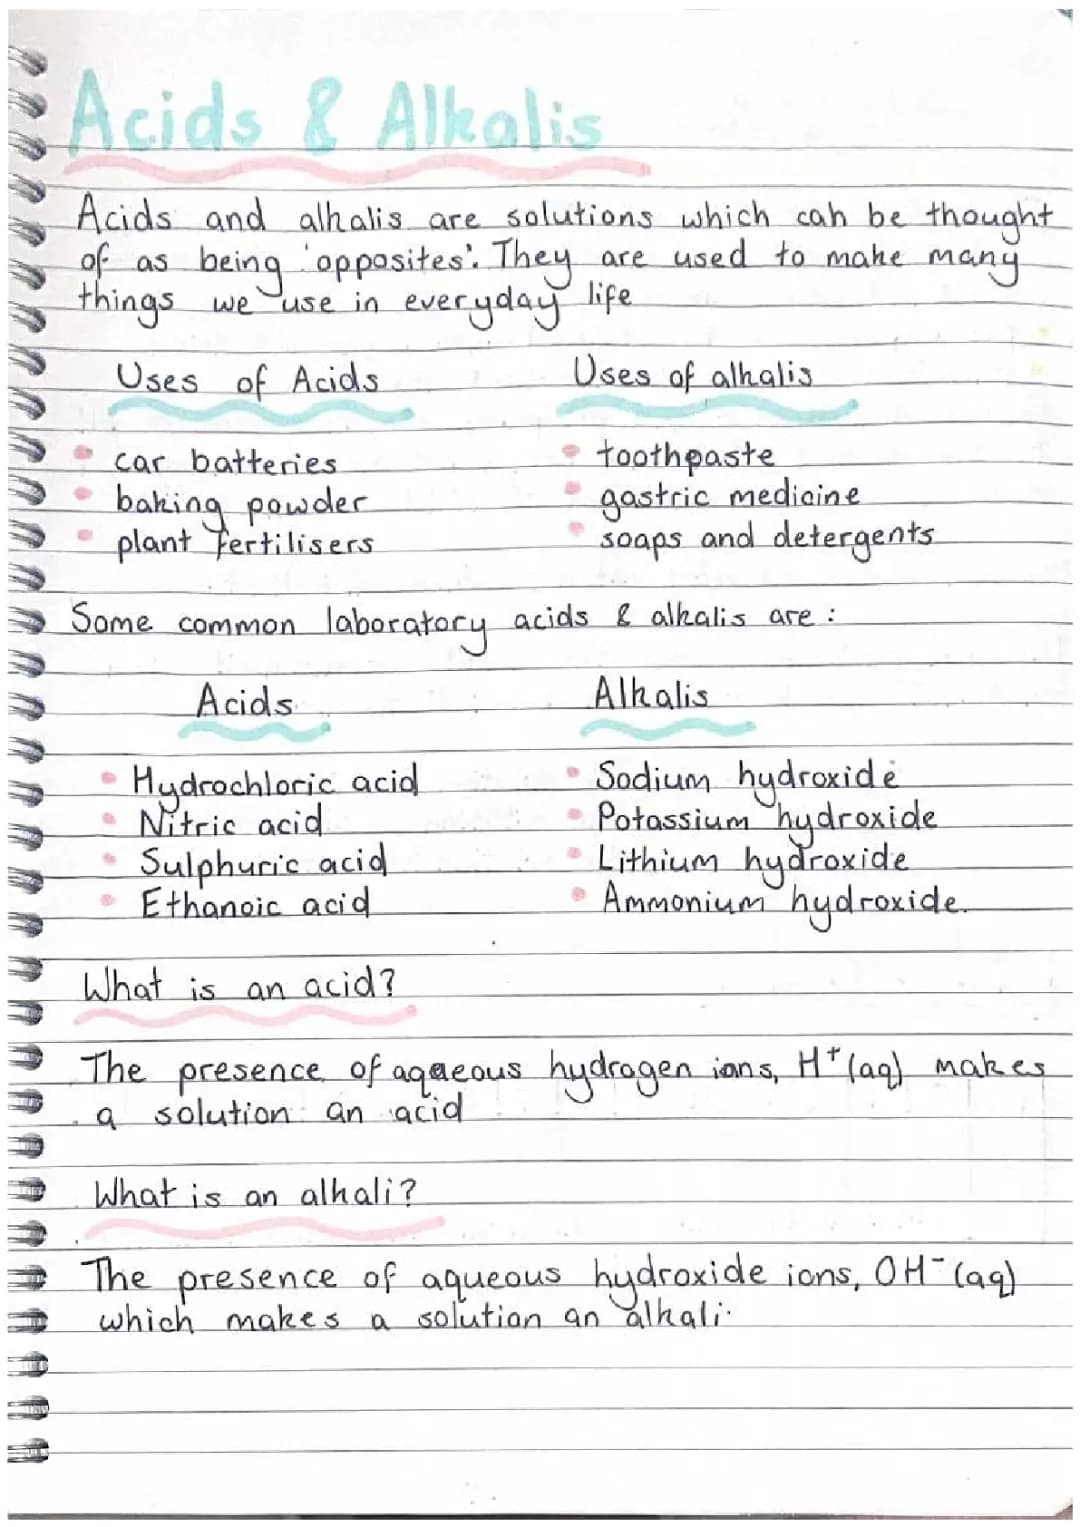 Acids & Alkalis
Acids and alkalis are solutions which can be thought
of as being 'opposites'. They are used to make many
things we use in everyday life
Uses of Acids
car batteries
baking powder
plant fertilisers
Uses of alkalis
toothpaste
gastric medicine
soaps and detergents
Some common laboratory acids & alkalis are :
Acids
Hydrochloric acid
Nitric acid
Sulphuric acid
Ethanoic acid
Alkalis
Sodium hydroxide
Potassium hydroxide
Lithium hydroxide
Ammonium hydroxide.
What is an acid?
The presence of aqueous hydrogen ions, H⁺(aq) makes
a solution an acid
What is an alkali?
The presence of aqueous hydroxide ions, OH⁻(aq)
which makes a solution an alkali.